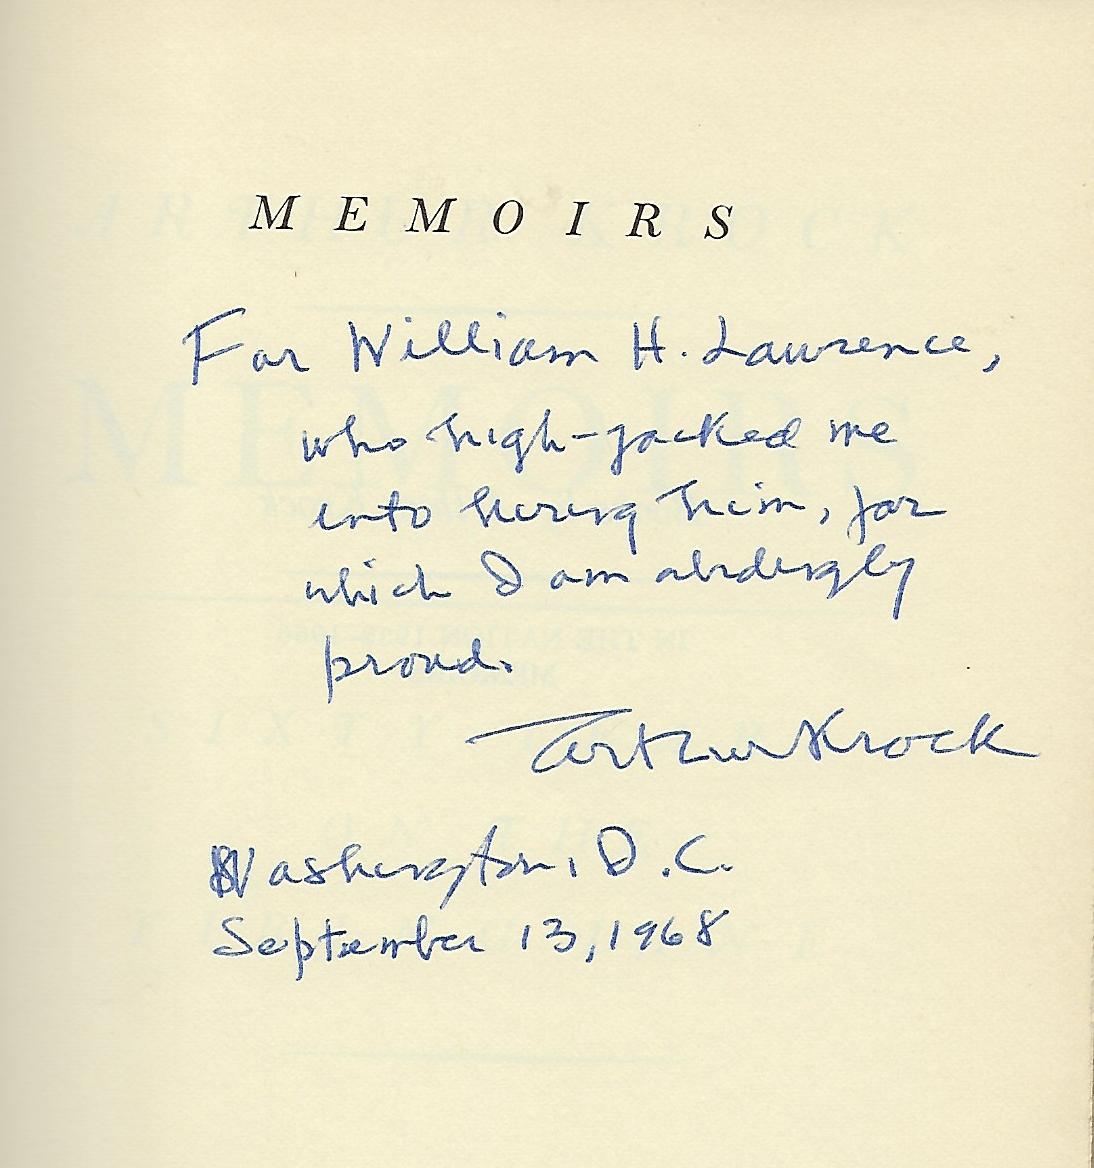 MEMOIRS
For William H. Lawrence,
who high-jacked me
into hiring him, for
which I am abidingly
proud.
Arthur Krock
Washington, D.C.
September 13, 1968